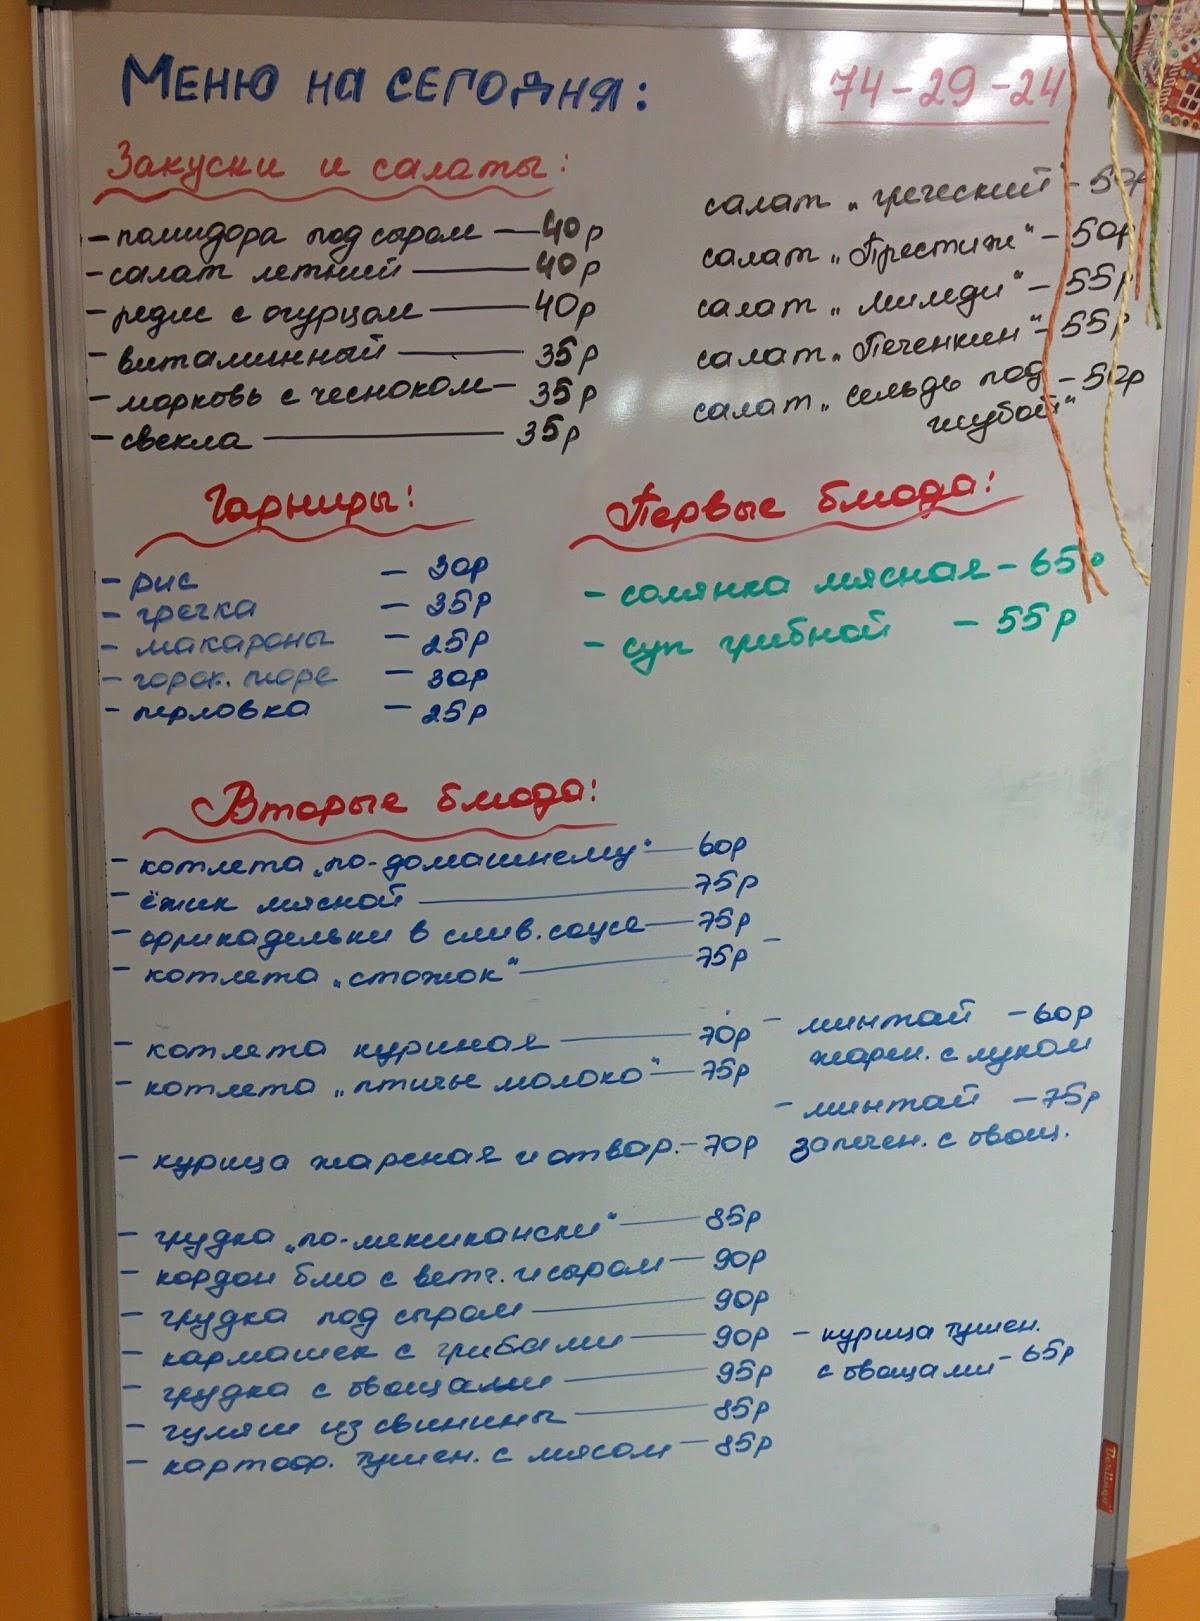 Меню на сегодня:
74-29-24
Закуски и салаты:
- помидора под сыром — 40р
- салат летний — 40р
- редис с огурцом — 40р
- витаминный — 35р
- морковь с чесноком — 35р
- свекла — 35р
салат „греческий" - 50р
салат „Престиж" - 50р
салат „миледи" - 55р
салат „Печенкин" - 55р
салат „сельдь под - 50р
шубой"
Гарниры:
- рис - 30р
- гречка - 35р
- макароны - 25р
- горох. пюре - 30р
- перловка - 25р
Первые блюда:
- солянка мясная - 65р
- суп грибной - 55р
Вторые блюда:
- котлета „по-домашнему" — 60р
- ёжик мясной — 75р
- фрикадельки в слив. соусе — 75р
- котлета „стожок" — 75р
- котлета куриная — 70р
- котлета „птичье молоко" — 75р
- курица жареная и отвар. - 70р
- минтай - 60р
жарен. с луком
- минтай - 75р
запечен. с овощ.
- грудка „по-мексикански" — 85р
- кордон блю с ветч. и сыром — 90р
- грудка под сыром — 90р
- кармашек с грибами — 90р
- грудка с овощами — 95р
- гуляш из свинины — 85р
- картоф. тушен. с мясом — 85р
- курица тушен.
с овощами - 65р